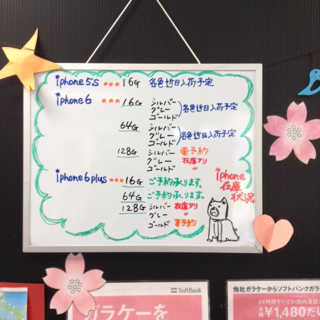 iphone5s ★★★ 16G 各色近日入荷予定
iphone6 ★★★ 16G シルバー
グレー
ゴールド
各色近日入荷予定
64G シルバー
グレー
ゴールド
各色近日入荷予定
128G シルバー 要予約
グレー 在庫アリ
ゴールド
iphone6plus ★★★ 16G ご予約承ります。
64G ご予約承ります。
128G シルバー 在庫アリ
グレー 〃
ゴールド 要予約
iphone
在庫
状況
SoftBank
ガラケーを
他社ガラケーからソフトバンクガラ
¥1,480だい